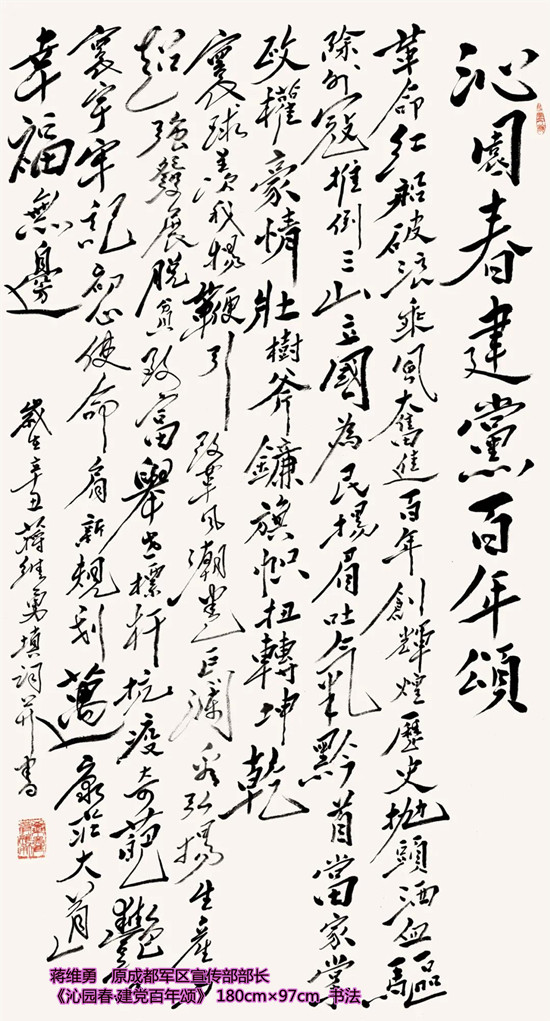 沁園春建黨百年頌
革命红船破浪乘風奮進百年創輝煌歷史抛頭洒血驅
除外寇推倒三山立國為民揚眉吐气黔首當家掌
政權豪情壯樹斧鐮旗幟扭轉坤乾
寰球羡我揚鞭引改革風潮卷巨瀾看弘揚生產
超強發展脱貧致富舉世標杆抗疫奇葩艷
寰宇牢記初心使命肩新規划邁康莊大道
幸福無邊
歲在辛丑蔣維勇填詞并書
蒋维勇 原成都军区宣传部部长
《沁园春·建党百年颂》 180cm×97cm 书法